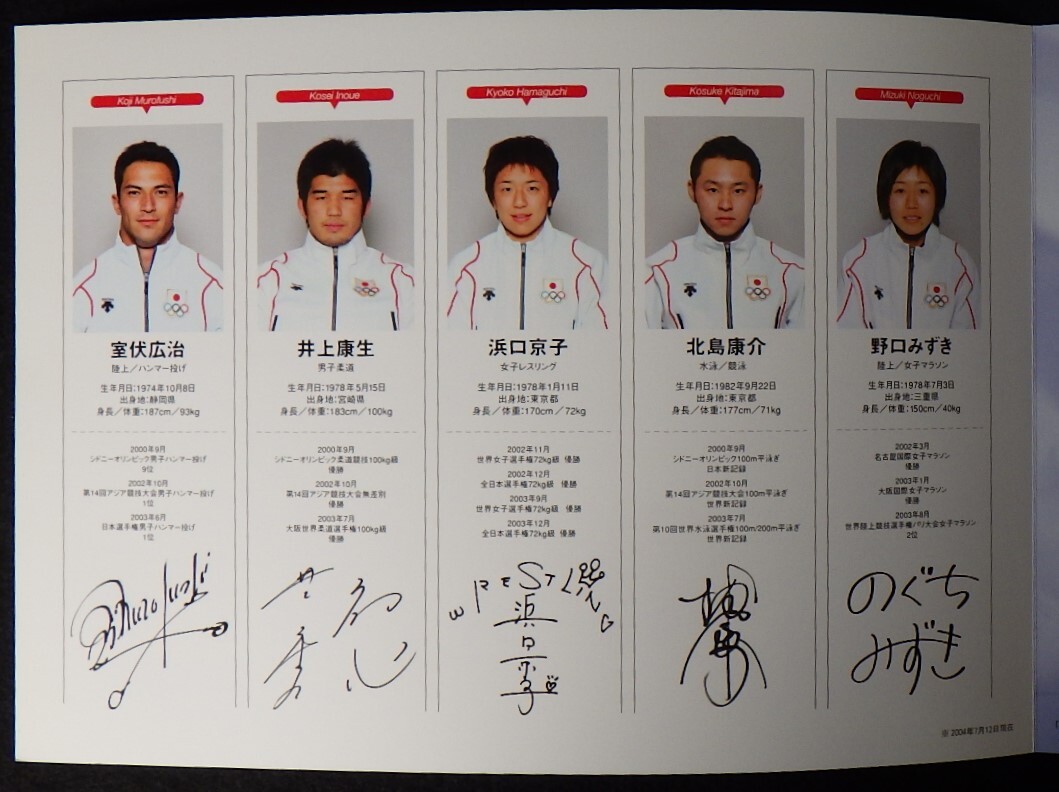 Koji Murofushi
室伏広治
陸上／ハンマー投げ
生年月日:1974年10月8日
出身地:静岡県
身長／体重:187cm／93kg
2000年9月
シドニーオリンピック男子ハンマー投げ
9位
2002年10月
第14回アジア競技大会男子ハンマー投げ
1位
2003年6月
日本選手権男子ハンマー投げ
1位
Kosei Inoue
井上康生
男子柔道
生年月日:1978年5月15日
出身地:宮崎県
身長／体重:183cm／100kg
2000年9月
シドニーオリンピック柔道競技100kg級
優勝
2002年10月
第14回アジア競技大会無差別
優勝
2003年7月
大阪世界柔道選手権100kg級
優勝
Kyoko Hamaguchi
浜口京子
女子レスリング
生年月日:1978年1月11日
出身地:東京都
身長／体重:170cm／72kg
2002年11月
世界女子選手権72kg級 優勝
2002年12月
全日本選手権72kg級 優勝
2003年9月
世界女子選手権72kg級 優勝
2003年12月
全日本選手権72kg級 優勝
浜口京子
Kosuke Kitajima
北島康介
水泳／競泳
生年月日:1982年9月22日
出身地:東京都
身長／体重:177cm／71kg
2000年9月
シドニーオリンピック100m平泳ぎ
日本新記録
2002年10月
第14回アジア競技大会100m平泳ぎ
世界新記録
2003年7月
第10回世界水泳選手権100m/200m平泳ぎ
世界新記録
Mizuki Noguchi
野口みずき
陸上／女子マラソン
生年月日:1978年7月3日
出身地:三重県
身長／体重:150cm／40kg
2002年3月
名古屋国際女子マラソン
優勝
2003年1月
大阪国際女子マラソン
優勝
2003年8月
世界陸上競技選手権パリ大会女子マラソン
2位
のぐち
みずき
※ 2004年7月12日現在